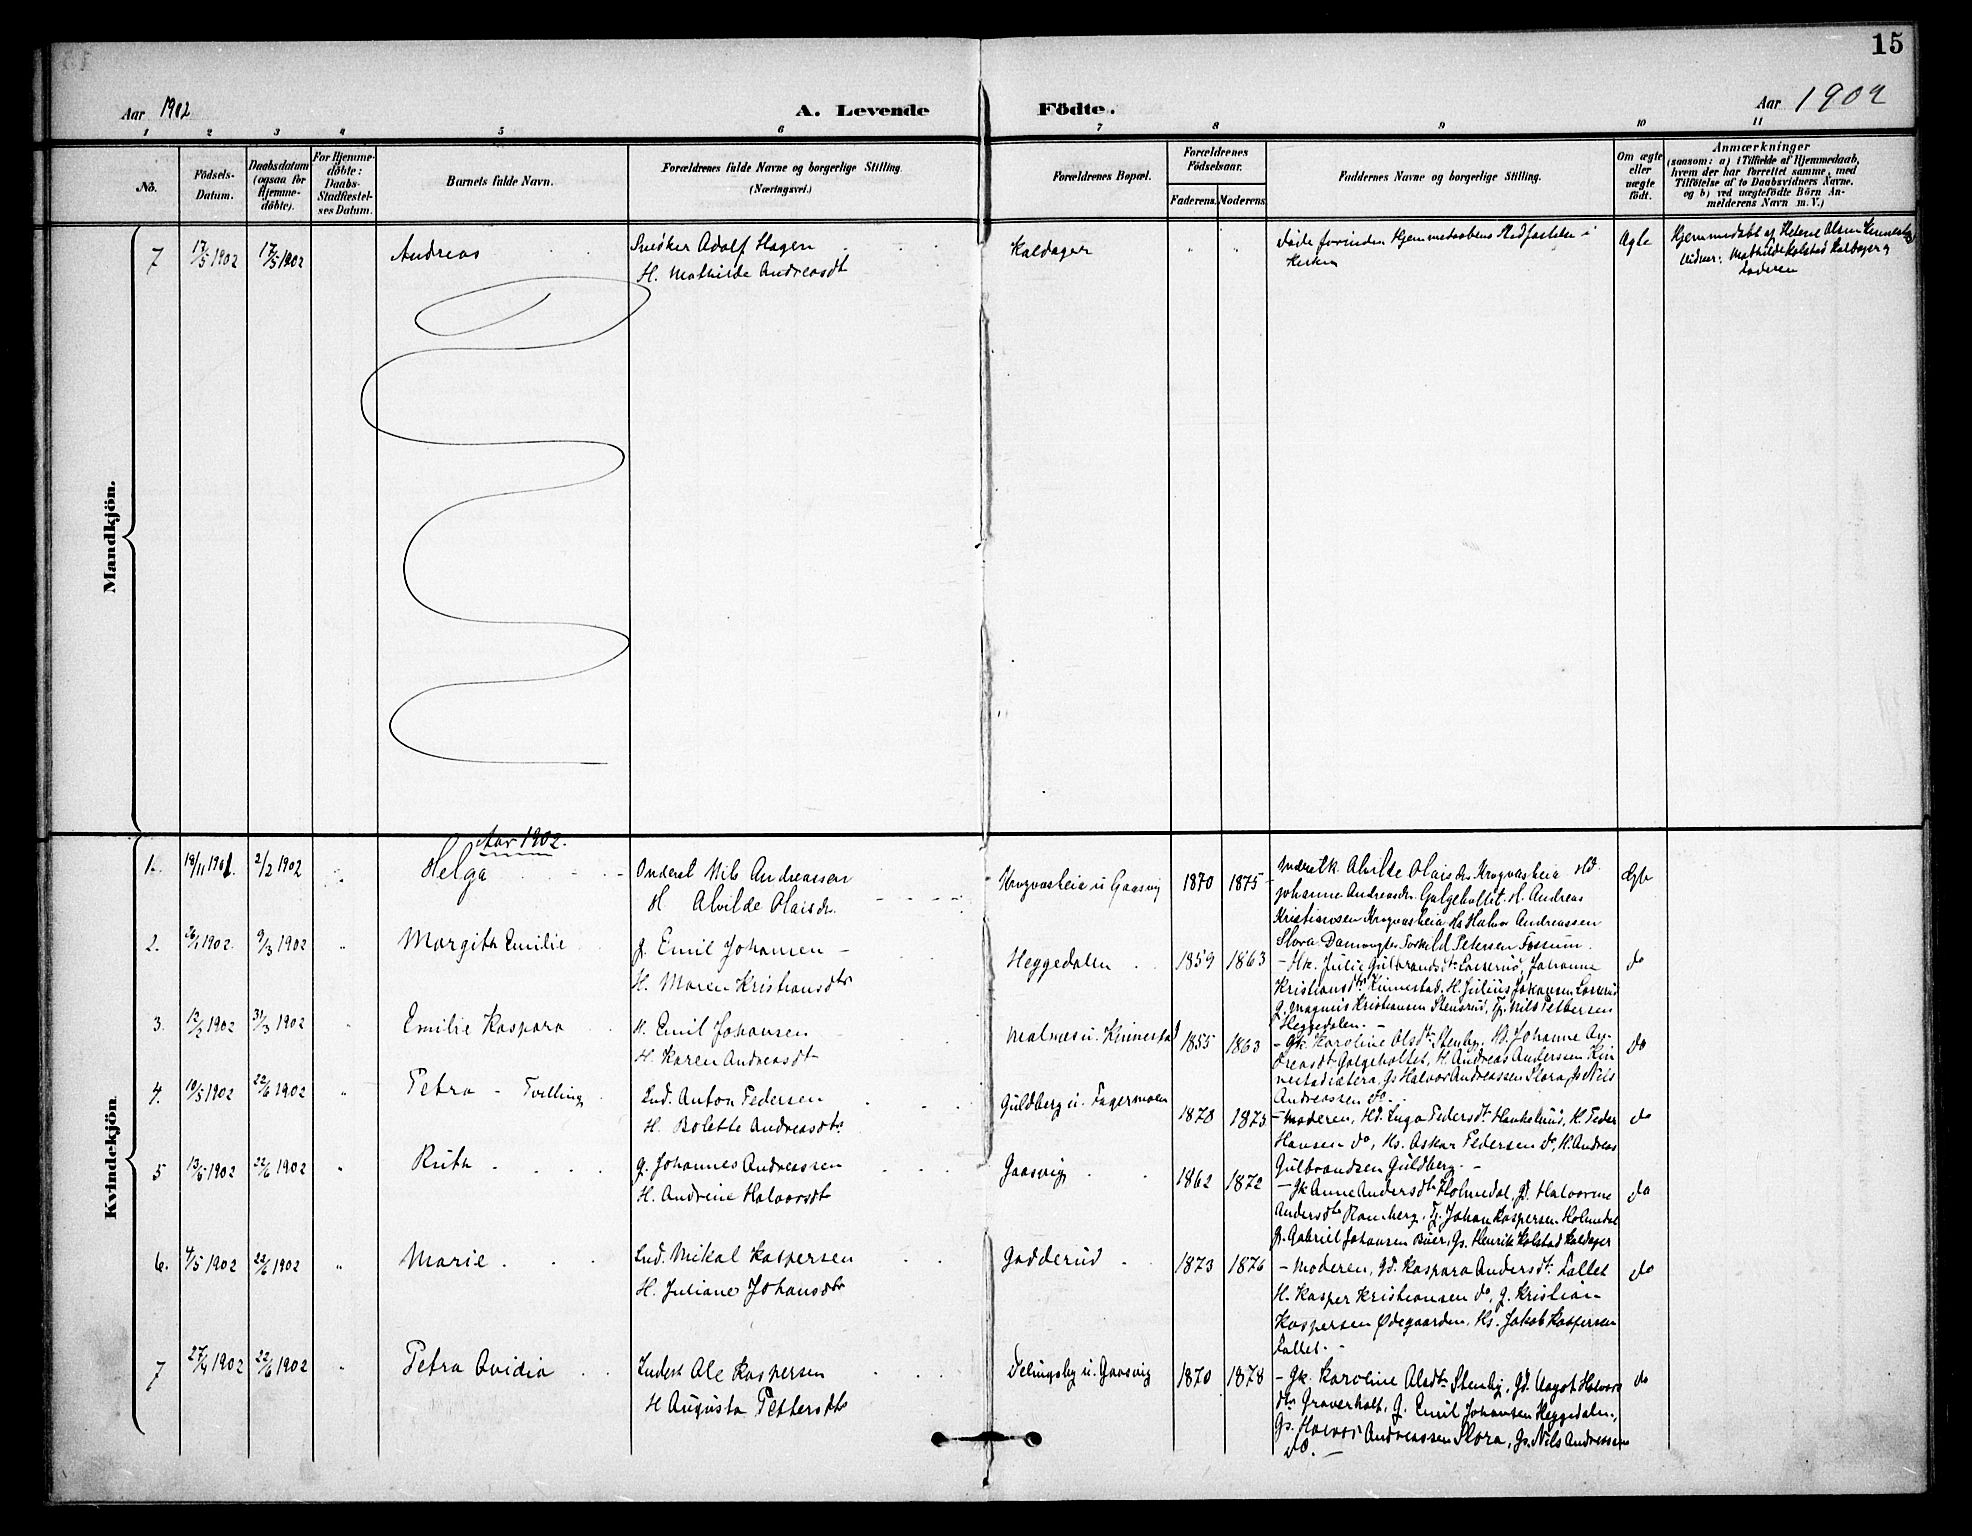 15
Aar 1902
A. Levende Födte.
Aar 1902
1 2 3 4 5 6 7 8 9 10 11
No.
Födsels-
Datum.
Daabsdatum
(ogsaa for
Hjemme-
döbte).
For Hjemme-
döbte:
Daabs-
Stadfæstel-
ses Datum.
Barnets fulde Navn.
Forældrenes fulde Navne og borgerlige Stilling
(Næringsvei.)
Forældrenes Bopæl.
Forældrenes
Födselsaar.
Faderens. Moderens.
Faddernes Navne og borgerlige Stilling.
Om ægte
eller
uægte
födt.
Anmærkninger
(saasom: a) i Tilfælde af Hjemmedaab,
hvem der har forrettet samme, med
Tilföielse af to Daabsvidners Navne,
og b) ved uægtefödte Börn An-
melderens Navn m. V.)
Mandkjön.
7
17/5 1902
17/5 1902
Andreas
Snedker Adolf Hagen
H. Mathilde Andreasdt
Kaldager
" "
Döde forinden Hjemmedaabens Stadfæstelse i
Kirken
Ægte
Hjemmedöbt af Helene Olsen
Vidner: Mathilde Kolstad Kaldager og
Faderen
Kvindekjön
Aar 1902.
1.
18/11 1901.
2/2 1902
Helga
Nils Andreassen
H Alvilde Olaisdr.
Krogvasheia u Gaasvig
1870 1875
Alvilde Olaisdr. Krogvasheia Hd.
Johanne Andreasdr. Galgeholtet. H. Andreas
Kristiansen Krogvasheia Hs Halvor Andreassen
Slora Torkild Petersen Fossum.
Ægte
2.
26/1 1902.
9/3 1902
"
Margith Emilie
g. Emil Johansen –
H. Maren Kristiansdtr
Heggedalen
1859 1863
– Hk. Julie Gulbrandsdtr Lasserud, Johanne
Kristiansdtr Kinnestad, H. Julius Johansen Lasserud
g. Magnus Kristiansen Stensrud, Tj. Nils Pettersen
Heggedalen. –
do
3.
12/2 1902
31/3 1902
"
Emilie Kaspara
H. Emil Johansen
H. Karen Andreasdt
Malnæs u. Kinnestad
1855 1863
– Gk. Karoline Olsdtr Stenby, Hd. Johanne An-
dreasdtr Galgeholtet, H. Andreas Anderssen Kin
nestadsætera, Gs Halvor Andreassen Slora, Gs Nils
Andreassen do. –
do
4.
10/5 1902
22/6 1902
"
Petra – Tvilling
Ind. Anton Pedersen
H. Bolette Andreasdtr
Guldberg u. Fagermoen
1873 1873
– Moderen, Hd. Inga Pedersdt Hankelrud, H. Peder
Hansen do, Hs. Askar Pedersen do, H. Andreas
Gulbrandsen Guldberg. –
do
5
13/5 1902
22/6 1902
"
Ruth
g. Johannes Andreassen
H. Andrine Halvorsdt
Gaasvig
1862 1872
– Gk Anne Andersdtr Holmedal, Gd. Halvorine
Andersdtr Ramberg, Tj. Johan Kaspersen Holmedal
g. Gabriel Johansen Buer, Gs. Henrik Kolstad Kaldager
do
6.
4/5 1902
22/6 1902
"
Marie
Ind. Mikal Kaspersen
H. Juliane Johansdtr
Gadderud
1873 1876
– Moderen, Gd. Kaspara Andersdt. Lallet
H. Kasper Kristiansen do, g. Kristian
Kaspersen Ødegaarden, Hs. Jakob Kaspersen
Lallet. –
do
7
27/4 1902
22/6 1902
"
Petra Ovidia
Inderst Ole Kaspersen
H Augusta Pettersdtr
Delingsby u. Gaasvig
1870 1878
– Gk. Karoline Olsdtr Stenby, Gd. Aagot Halvors
dtr Graverholt, G. Emil Johansen Heggedalen,
Gs. Halvor Andreassen Slora, Gs. Nils Andreassen
do. –
do